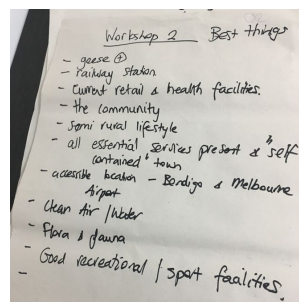 Workshop 2 Best things
- geese ⊕
- railway station
- Current retail & health facilities.
- the community
- Semi rural lifestyle
- all essential services present & "self
contained" town
- accessible location - Bendigo & Melbourne
Airport
- Clean Air / Water
- Flora & fauna
- Good recreational / sport facilities.
-